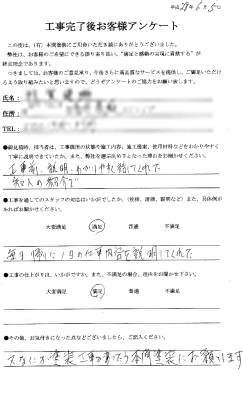 平成28年6月5日
工事完了後お客様アンケート
この度は、(有)本間塗装にご用命いただき誠にありがとうございました。
弊社は、お客様のご希望にできる限り添い、"満足と感動の実現に貢献する"が
経営理念であります。
つきましては、お客様のご意見承り、今後さらに高品質なサービスを提供し、ご満足いただけ
るよう取り組みたいと思いますので、どうぞアンケートのご協力をお願いいたします。
氏名:
住所:
TEL:
●御見積時、担当者は、工事箇所の状態や施工内容、施工価格、使用材料などをわかりやすく
丁寧に説明できていたか、また、弊社を選ぶ決め手となった理由をお聞かせください。
工事前、説明、わかりやすく話してくれた
知人の紹介で
●工事を通してのスタッフの対応はいかがでしたか。(挨拶、清掃、説明など)また、具体例が
あればお聞かせください。
大変満足 満足 普通 不満足
毎日帰りに1日の仕事内容を説明してくれた
●工事の仕上がりは、いかがですか。また、不満足の場合、理由をお聞かせ下さい。
大変満足 満足 普通 不満足
●その他、お気付きになった点などございましたら、ご記入ください。
又なにか塗装工事が有ったら本間塗装にお願いします